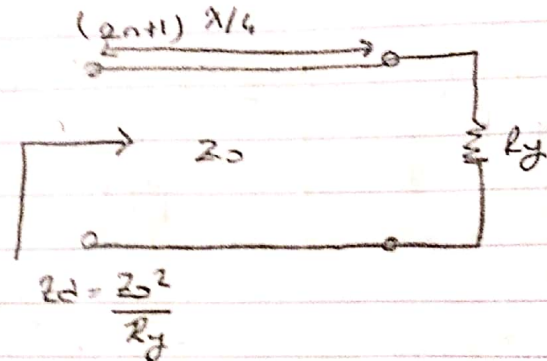 (2n+1) λ/4
Z₀
Ry
Zd = Z₀²/Ry